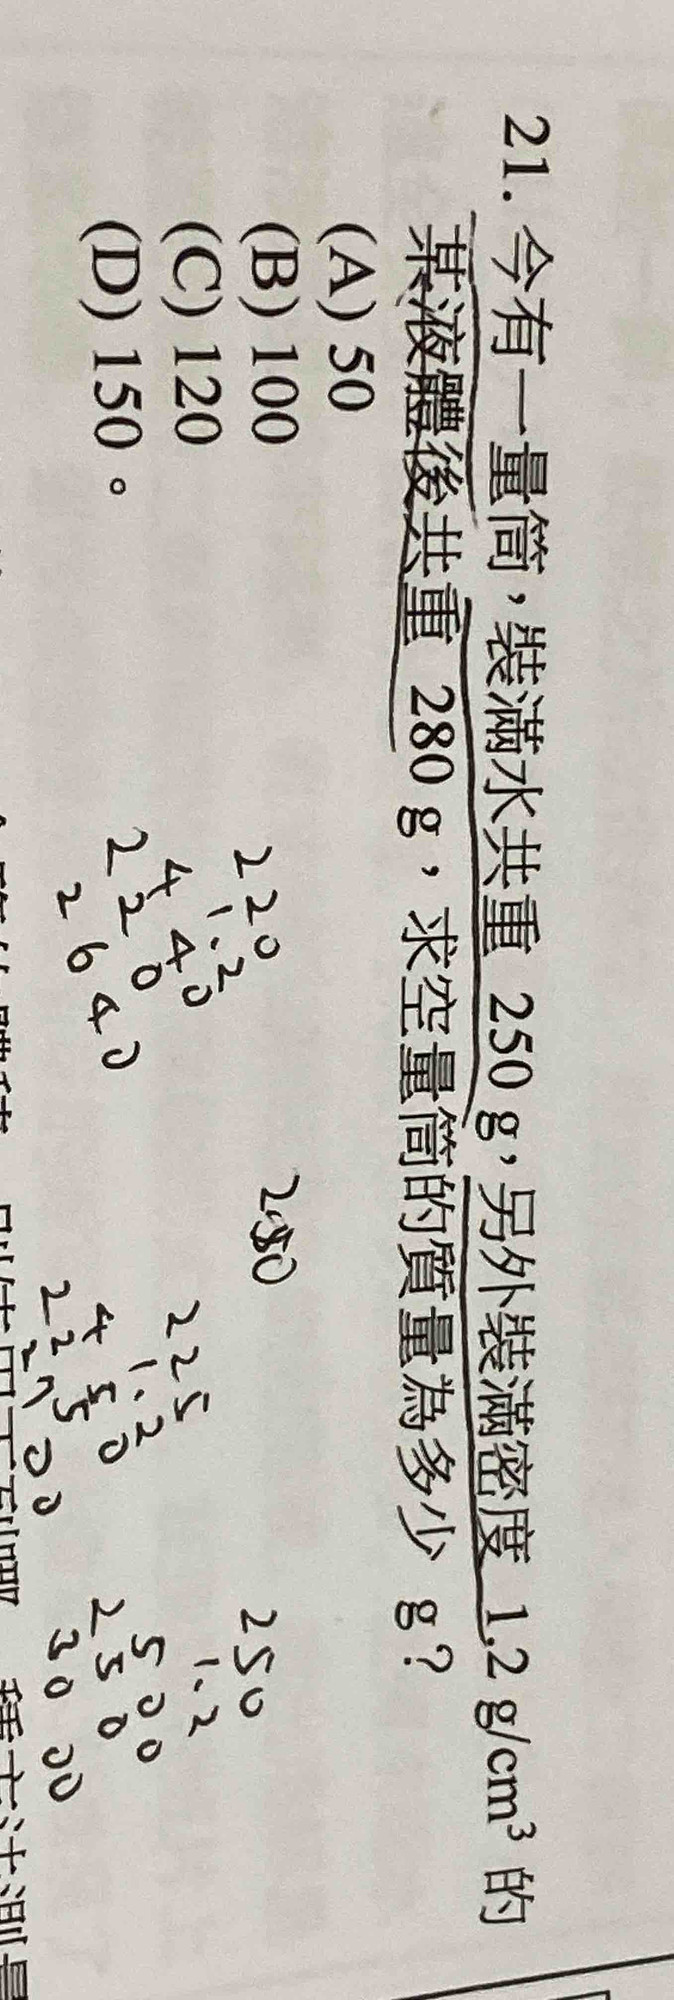 21. 今有一量筒，裝滿水共重 250 g，另外裝滿密度 1.2 g/cm³ 的
某液體後共重 280 g，求空量筒的質量為多少 g？
(A) 50
(B) 100
(C) 120
(D) 150。
220
1.2
440
220
2640
280
225
1.2
450
225
2700
250
1.2
500
250
3000